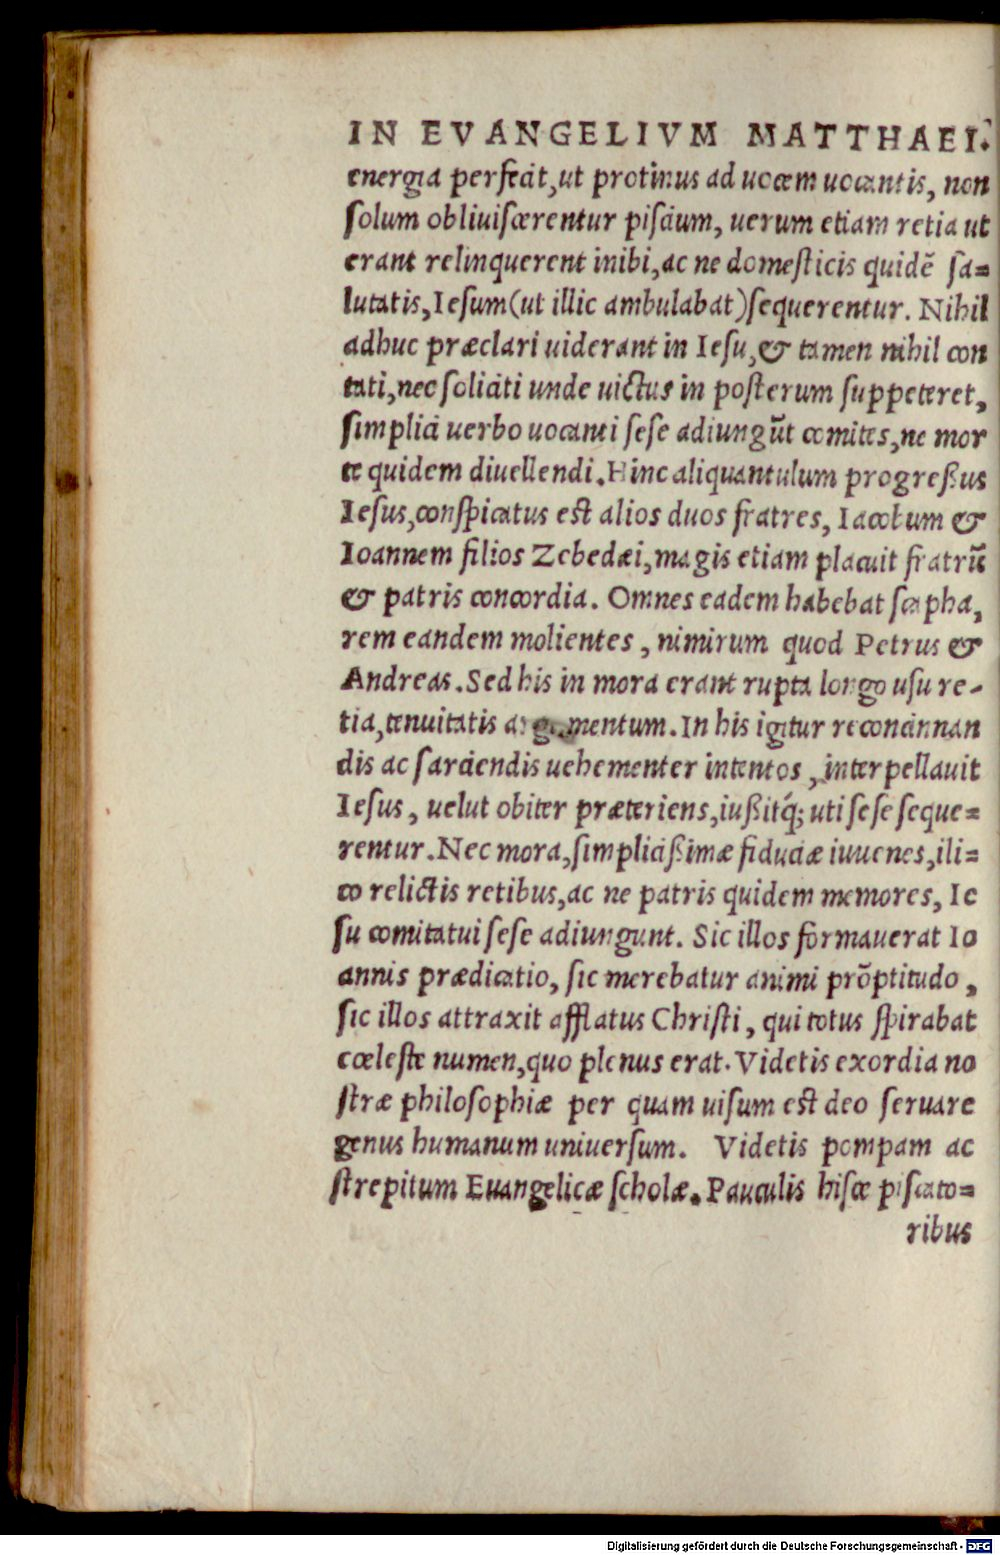 IN EVANGELIVM MATTHAEI.
energia perfecit, ut protinus ad uocem uocantis, non
solum obliuiscerentur piscium, uerum etiam retia ut
erant relinquerent inibi, ac ne domesticis quidẽ sa=
lutatis, Iesum (ut illic ambulabat) sequerentur. Nihil
adhuc præclari uiderant in Iesu, & tamen nihil con
tati, nec soliciti unde uictus in posterum suppeteret,
simplici uerbo uocanti sese adiungũt comites, ne mor
te quidem diuellendi. Hinc aliquantulum progreßus
Iesus, conspicatus est alios duos fratres, Iacobum &
Ioannem filios Zebedæi, magis etiam placuit fratrũ
& patris concordia. Omnes eadem habebat scapha,
rem eandem molientes, nimirum quod Petrus &
Andreas. Sed his in mora erant rupta longo usu re-
tia, tenuitatis argumentum. In his igitur reconcinnan
dis ac sarciendis uehementer intentos, interpellauit
Iesus, uelut obiter præteriens, iußitq́; uti sese seque=
rentur. Nec mora, simplicißimæ fiduciæ iuuenes, ili=
co relictis retibus, ac ne patris quidem memores, Ie
su comitatui sese adiungunt. Sic illos formauerat Io
annis prædicatio, sic merebatur animi prõptitudo,
sic illos attraxit afflatus Christi, qui totus spirabat
cœleste numen, quo plenus erat. Videtis exordia no
stræ philosophiæ per quam uisum est deo seruare
genus humanum uniuersum. Videtis pompam ac
strepitum Euangelicæ scholæ. Pauculis hisce piscato=
ribus
Digitalisierung gefördert durch die Deutsche Forschungsgemeinschaft - DFG